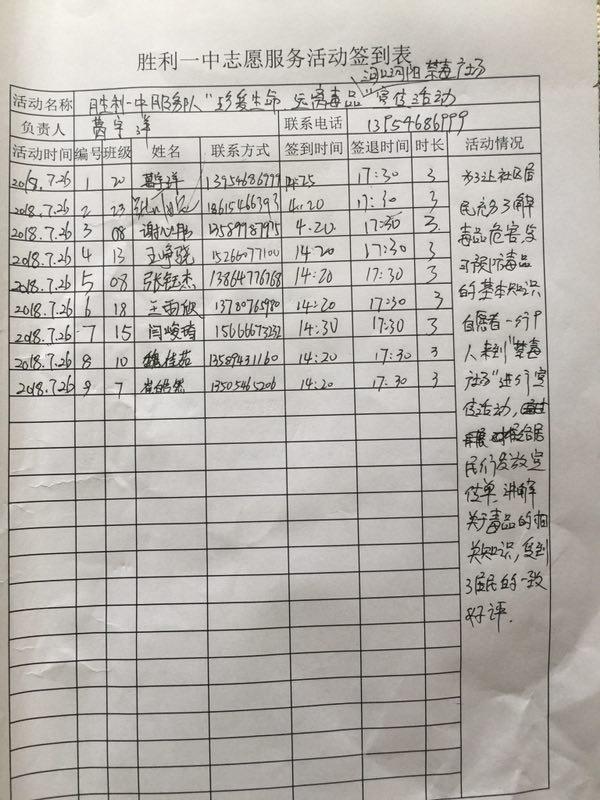 胜利一中志愿服务活动签到表
禁毒广场
活动名称 胜利一中服务队"珍爱生命 远离毒品"宣传活动
负责人 葛宇洋 联系电话 13954686999
活动时间 编号 班级 姓名 联系方式 签到时间 签退时间 时长 活动情况
2018.7.26 1 20 葛宇洋 13954686999 14:25 17:30 3
2018.7.26 2 23 18615466393 4:20 17:30 3
2018.7.26 3 08 4:20 17:30 3
2018.7.26 4 13 王峥骁 15266077100 14:20 17:30 3
2018.7.26 5 08 张钰杰 13864776768 14:20 17:30 3
2018.7.26 6 18 王雨欣 14:20 17:30 3
2018.7.26 7 15 闫峻琦 15666673232 14:30 17:30 3
2018.7.26 8 10 魏佳茹 13589431160 14:20 17:30 3
2018.7.26 9 7 崔皓然 13505465206 14:20 17:30 3
为了让社区居
民充分了解
毒品危害及
预防毒品
的基本知识
自愿者一行9
人来到"禁毒
广场"进行宣
传活动,
给居
民们发放宣
传单,讲解
关于毒品的相
关知识,受到
了居民的一致
好评.